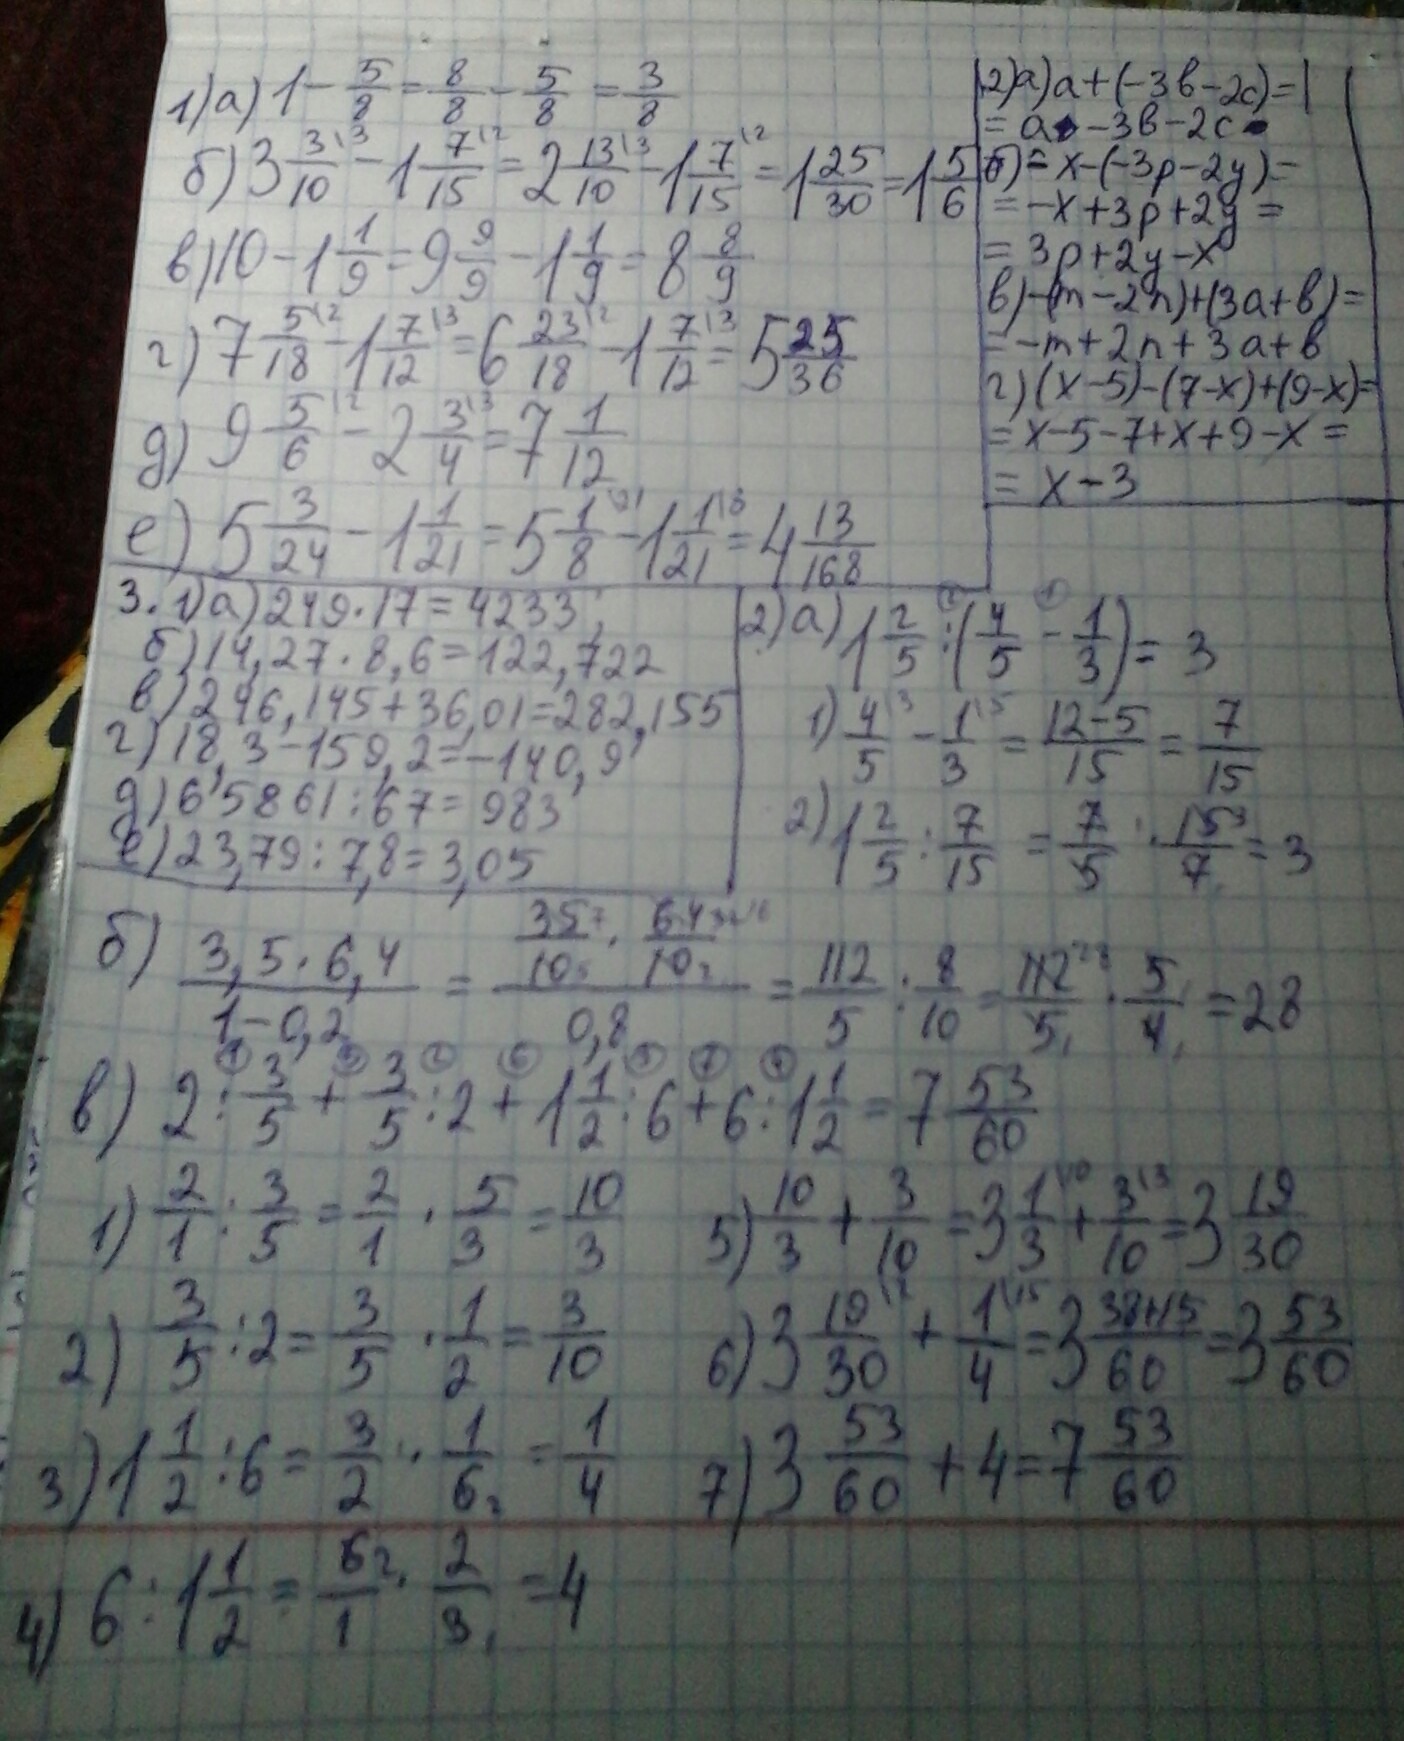 1) а) 1 - 5/8 = 8/8 - 5/8 = 3/8
б) 3 3\3/10 - 1 7\2/15 = 2 13\3/10 - 1 7\2/15 = 1 25/30 = 1 5/6
в) 10 - 1 1/9 = 9 9/9 - 1 1/9 = 8 8/9
г) 7 5\2/18 - 1 7\3/12 = 6 23\2/18 - 1 7\3/12 = 5 25/36
д) 9 5\2/6 - 2 3\3/4 = 7 1/12
е) 5 3/24 - 1 1/21 = 5 1\21/8 - 1 1\8/21 = 4 13/168
2) а) а + (-3в - 2с) =
= а - 3в - 2с
б) - x - (-3p - 2y) =
= -x + 3p + 2y =
= 3p + 2y - x
в) -(m - 2n) + (3а + в) =
= -m + 2n + 3а + в
г) (x - 5) - (7 - x) + (9 - x) =
= x - 5 - 7 + x + 9 - x =
= x - 3
3. 1) а) 249 · 17 = 4233;
б) 14,27 · 8,6 = 122,722
в) 246,145 + 36,01 = 282,155
г) 18,3 - 159,2 = -140,9
д) 65861 : 67 = 983
е) 23,79 : 7,8 = 3,05
2) а) 1 2/5 : (4/5 - 1/3) = 3
1) 4\3/5 - 1\5/3 = 12-5/15 = 7/15
2) 1 2/5 : 7/15 = 7/5 · 15 3/7 = 3
б) 3,5 · 6,4/1 - 0,2 = 35/10 · 64/10/0,8 = 112/5 : 8/10 = 112/5 · 5/4 = 28
в) 2 : 3/5 + 3/5 : 2 + 1 1/2 : 6 + 6 : 1 1/2 = 7 53/60
1) 2/1 : 3/5 = 2/1 · 5/3 = 10/3
2) 3/5 : 2 = 3/5 · 1/2 = 3/10
3) 1 1/2 : 6 = 3/2 · 1/6 2 = 1/4
4) 6 : 1 1/2 = 6 2/1 · 2/3 1 = 4
5) 10/3 + 3/10 = 3 1\10/3 + 3\3/10 = 3 19/30
6) 3 19\2/30 + 1\15/4 = 3 38+15/60 = 3 53/60
7) 3 53/60 + 4 = 7 53/60